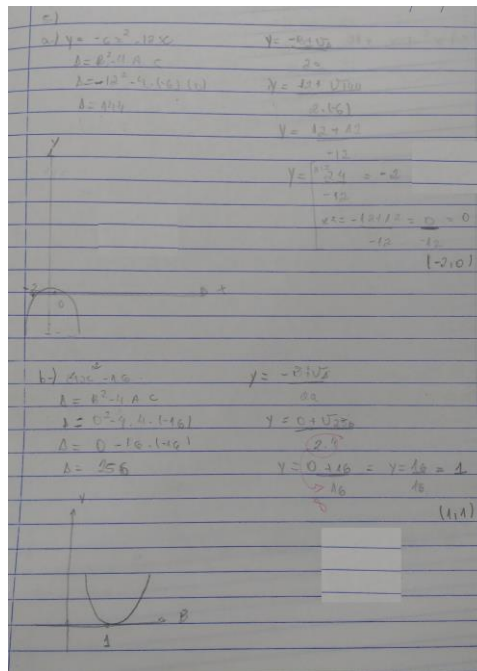 c)
a) y = -6x² - 12x
Δ = B² - 4 A C
Δ = -12² - 4 . (-6)
Δ = 144
y = -B + √Δ
2a
y = 12 + √144
2.(-6)
y = 12 + 12
-12
y = 24 = -2
-12
x² = -12+12 = 0 = 0
-12 -12
(-2,0)
y
-2 0 x
b-) 4x² - 16
Δ = B² - 4 A C
Δ = 0² - 4 . 4 . (-16)
Δ = 0 - 16 . (-16)
Δ = 256
y = -B + √Δ
2a
y = 0 + √256
2.4
y = 0 + 16 = y = 16 = 1
16 16
8
(1,1)
y
B
1